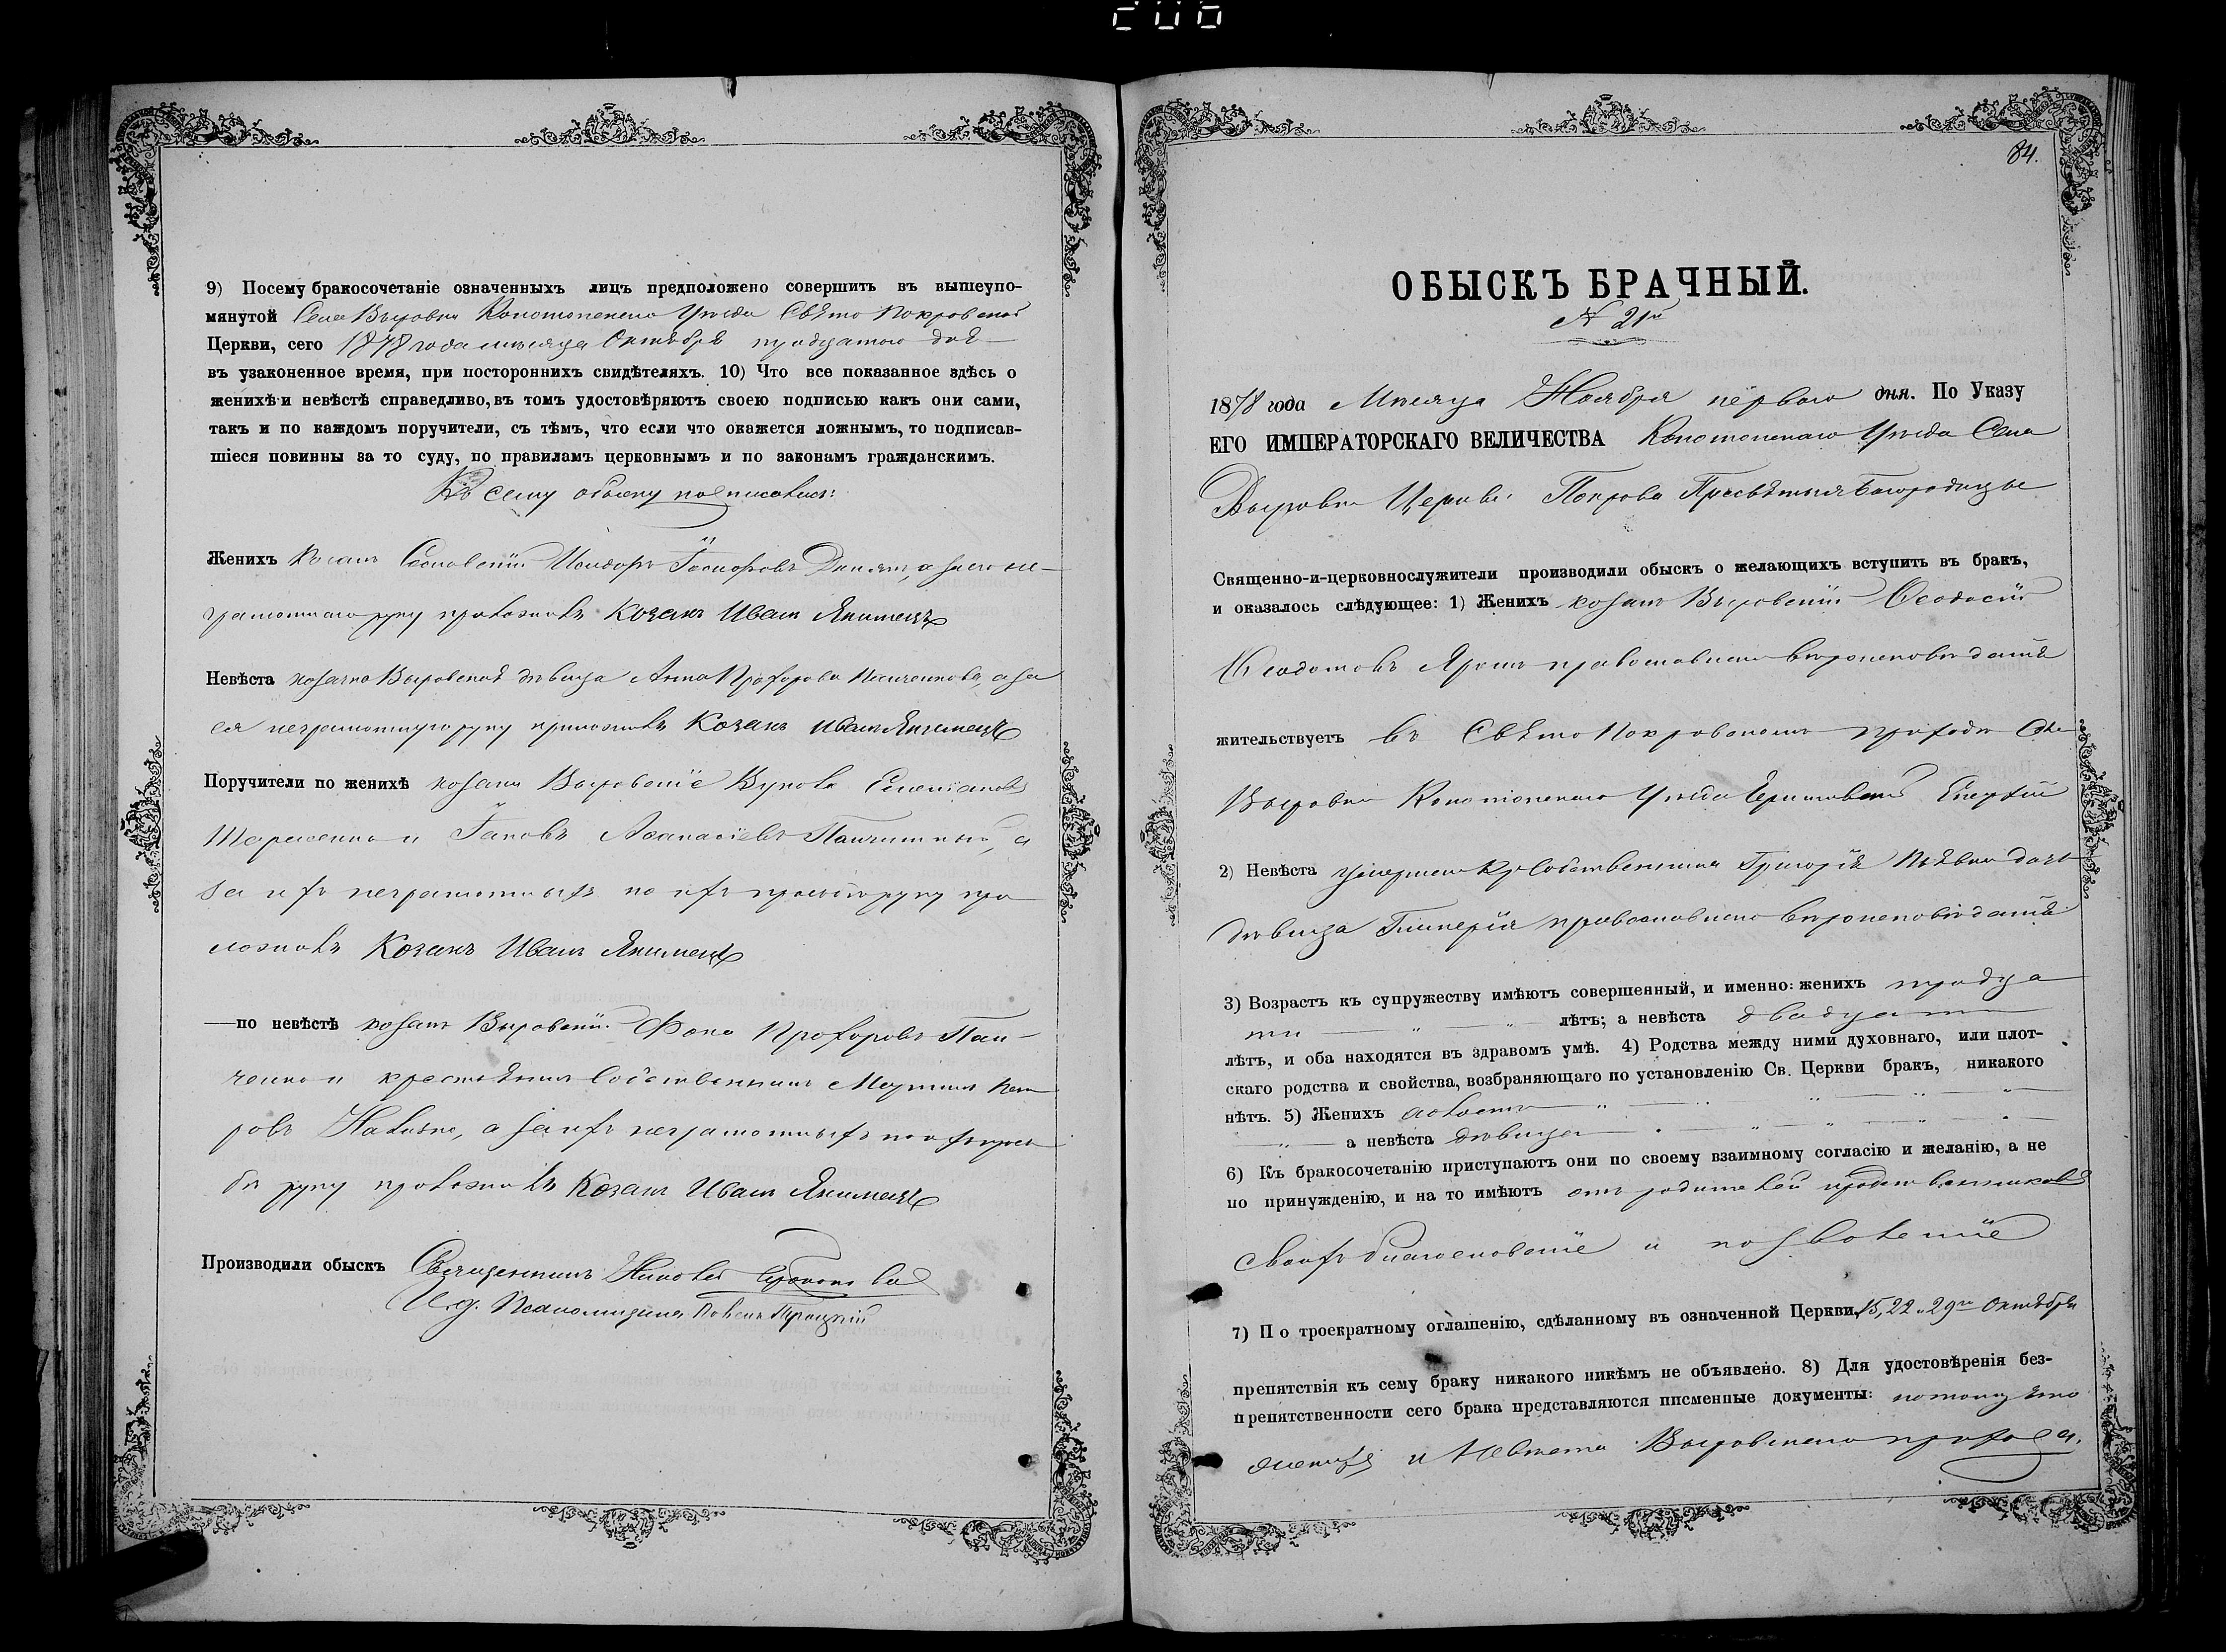 206
9) Посему бракосочетаніе означенныхъ лицъ предположено совершить въ вышеупо-
мянутой Села Выровки Конотопскаго Уѣзда Свято Покровской
Церкви, сего 1878 года мѣсяца Октября тридцатого дня
въ узаконенное время, при постороннихъ свидѣтеляхъ. 10) Что все показанное здѣсь о
женихѣ и невѣстѣ справедливо, въ томъ удостовѣряютъ своею подписью какъ они сами,
такъ и по каждомъ поручители, съ тѣмъ, что если что окажется ложнымъ, то подписав-
шіеся повинны за то суду, по правиламъ церковнымъ и по законамъ гражданскимъ.
Къ сему обыску подписались:
Женихъ Козакъ Исидоръ а за его не-
грамотнаго руку приложилъ Козакъ Иванъ Якимецъ
Невѣста козачка Выровская дѣвица Анна Прохорова а за
ея неграмотную руку приложилъ Козакъ Иванъ Якимецъ
Поручители по женихѣ козаки Выровскіе
и Іаковъ Аѳанасіевъ а
за ихъ неграмотныхъ по ихъ просьбѣ руку при-
ложилъ Козакъ Иванъ Якимецъ
—по невѣстѣ козакъ Выровскій Фока Прохоровъ Пан-
ченко и крестьянинъ собственникъ Пет-
ровъ а за ихъ неграмотныхъ по ихъ прось-
бѣ руку приложилъ Козакъ Иванъ Якимецъ
Производили обыскъ Священникъ
И. д. Псаломщика Павелъ Троицкій
84.
ОБЫСКЪ БРАЧНЫЙ.
№ 21й
1878 года Мѣсяца Ноября перваго дня. По Указу
ЕГО ИМПЕРАТОРСКАГО ВЕЛИЧЕСТВА Конотопскаго Уѣзда Села
Выровки Церкви Покрова Пресвятыя Богородицы
Священно-и-церковнослужители производили обыскъ о желающихъ вступить въ бракъ,
и оказалось слѣдующее: 1) Женихъ козакъ Выровскій Ѳеодосій
Ѳеодотовъ православнаго вѣроисповѣданія
жительствуетъ въ Свято Покровскомъ приходѣ Села
Выровки Конотопскаго Уѣзда Черниговской Епархіи
2) Невѣста умершаго Кр. Собственника Григорія дочь
дѣвица Гликерія православнаго вѣроисповѣданія
3) Возрастъ къ супружеству имѣютъ совершенный, и именно: женихъ тридца
ти лѣтъ; а невѣста двадцати
лѣтъ, и оба находятся въ здравомъ умѣ. 4) Родства между ними духовнаго, или плот-
скаго родства и свойства, возбраняющаго по установленію Св. Церкви бракъ, никакого
нѣтъ. 5) Женихъ холостъ
а невѣста дѣвица
6) Къ бракосочетанію приступаютъ они по своему взаимному согласію и желанію, а не
по принужденію, и на то имѣютъ отъ родителей и родственниковъ
своихъ благословеніе и позволеніе
7) По троекратному оглашенію, сдѣланному въ означенной Церкви, 15, 22 и 29го Октября
препятствія къ сему браку никакого никѣмъ не объявлено. 8) Для удостовѣренія без-
препятственности сего брака представляются писменные документы: потому что
женихъ и невѣста Выровскаго прихода.